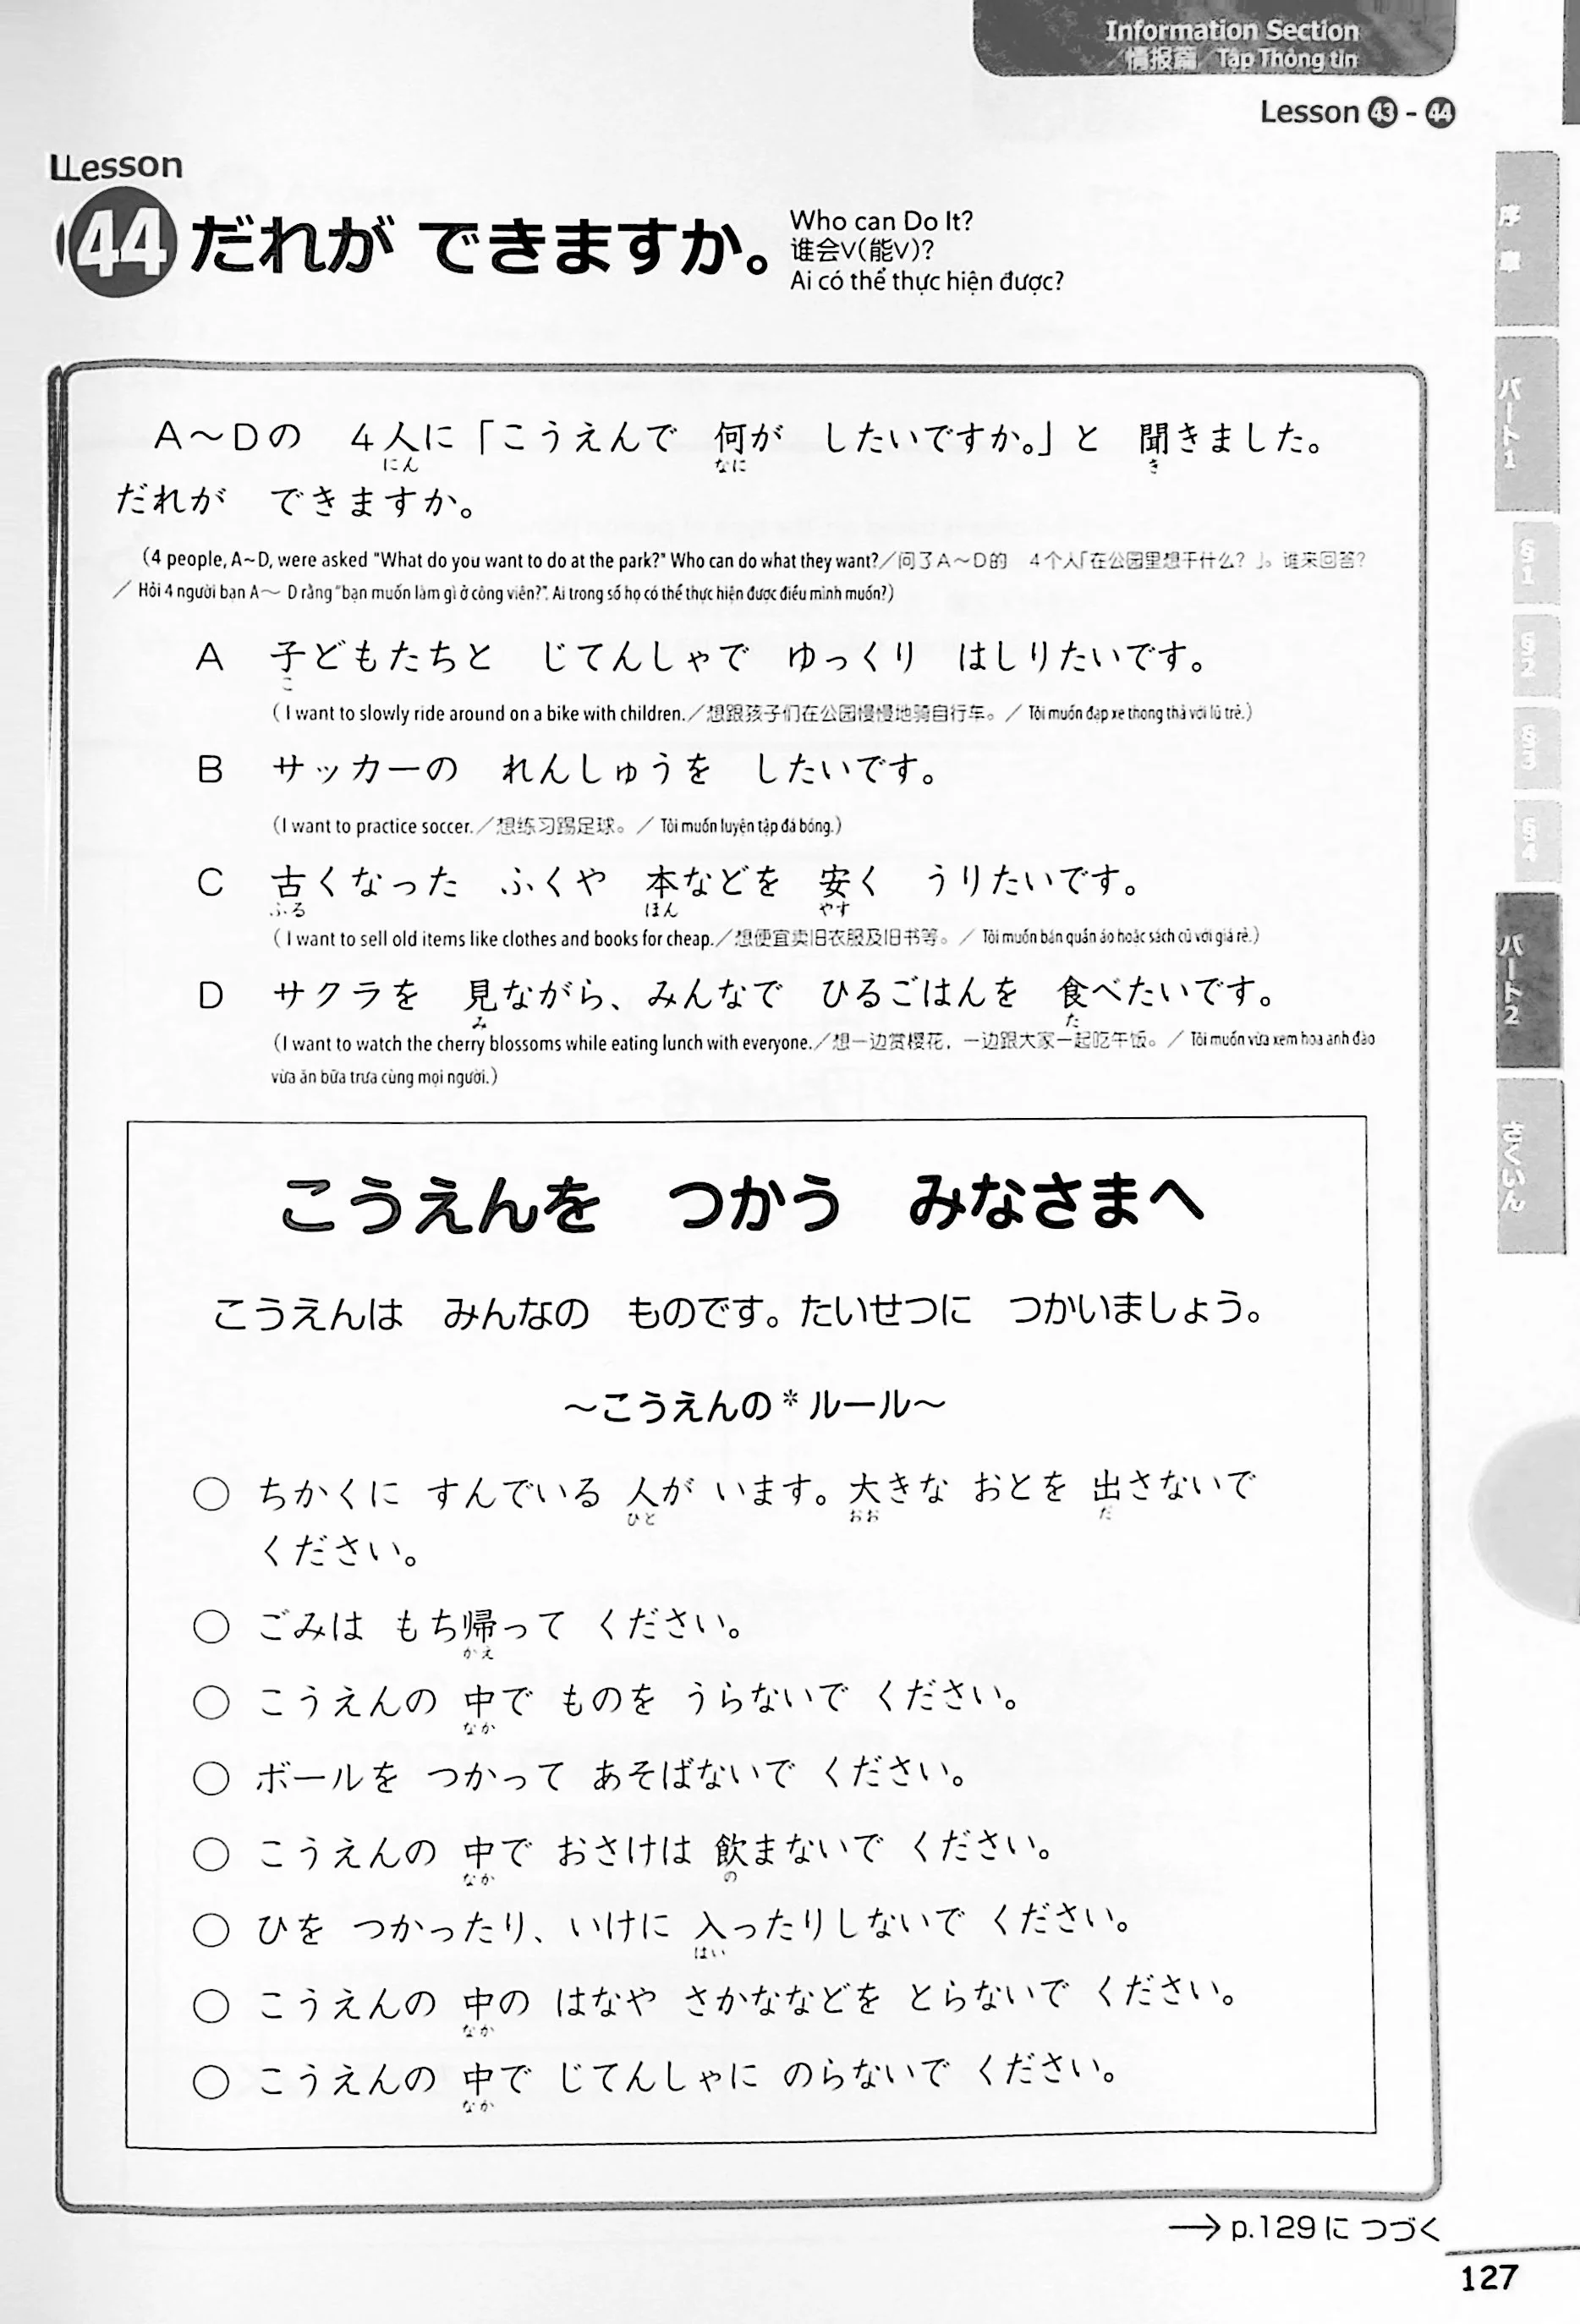 Information Section
／情报篇／Tập Thông tin
Lesson 43 - 44
Lesson
44 だれが できますか。
Who can Do It?
谁会V(能V)?
Ai có thể thực hiện được?
序章
パート1
§1
§2
§3
§4
パート2
さくいん
A～Dの 4人に「こうえんで 何が したいですか。」と 聞きました。
にん なに き
だれが できますか。
(4 people, A~D, were asked "What do you want to do at the park?" Who can do what they want?／问了A～D的 4个人「在公园里想干什么？」。谁来回答？
／ Hỏi 4 người bạn A～ D rằng "bạn muốn làm gì ở công viên?". Ai trong số họ có thể thực hiện được điều mình muốn?)
A 子どもたちと じてんしゃで ゆっくり はしりたいです。
こ
( I want to slowly ride around on a bike with children.／想跟孩子们在公园慢慢地骑自行车。／ Tôi muốn đạp xe thong thả với lũ trẻ.)
B サッカーの れんしゅうを したいです。
(I want to practice soccer.／想练习踢足球。／ Tôi muốn luyện tập đá bóng.)
C 古くなった ふくや 本などを 安く うりたいです。
ふる ほん やす
( I want to sell old items like clothes and books for cheap.／想便宜卖旧衣服及旧书等。／ Tôi muốn bán quần áo hoặc sách cũ với giá rẻ.)
D サクラを 見ながら、みんなで ひるごはんを 食べたいです。
み た
(I want to watch the cherry blossoms while eating lunch with everyone.／想一边赏樱花，一边跟大家一起吃午饭。／ Tôi muốn vừa xem hoa anh đào
vừa ăn bữa trưa cùng mọi người.)
こうえんを つかう みなさまへ
こうえんは みんなの ものです。たいせつに つかいましょう。
～こうえんの*ルール～
○ ちかくに すんでいる 人が います。大きな おとを 出さないで
ひと おお だ
ください。
○ ごみは もち帰って ください。
かえ
○ こうえんの 中で ものを うらないで ください。
なか
○ ボールを つかって あそばないで ください。
○ こうえんの 中で おさけは 飲まないで ください。
なか の
○ ひを つかったり、いけに 入ったりしないで ください。
はい
○ こうえんの 中の はなや さかななどを とらないで ください。
なか
○ こうえんの 中で じてんしゃに のらないで ください。
なか
→ p.129に つづく
127